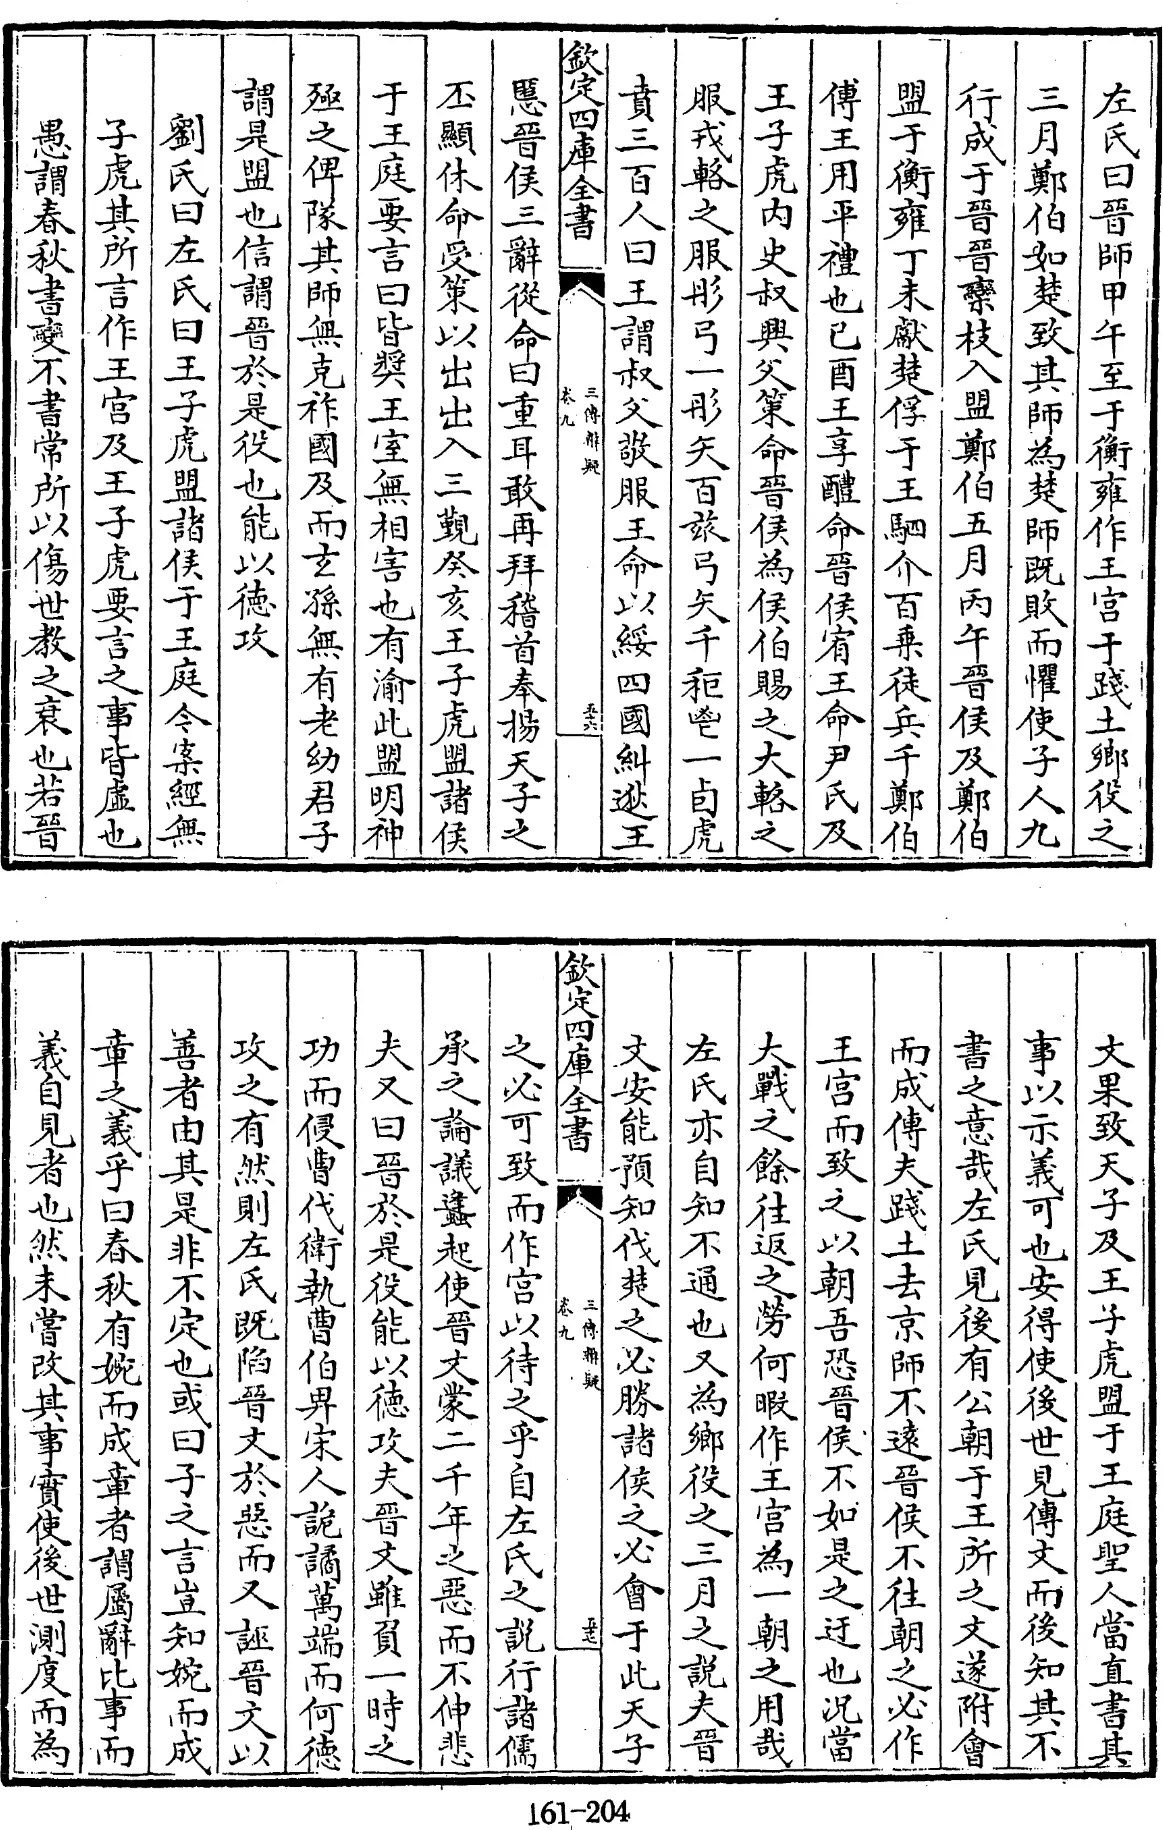 左氏曰晉師甲午至于衡雍作王宫于踐土鄉役之
三月鄭伯如楚致其師為楚師既敗而懼使子人九
行成于晉晉欒枝入盟鄭伯五月丙午晉侯及鄭伯
盟于衡雍丁未獻楚俘于王駟介百乗徒兵千鄭伯
傅王用平禮也已酉王享醴命晉侯宥王命尹氏及
王子虎内史叔興父策命晉侯為侯伯賜之大輅之
服戎輅之服彤弓一彤矢百玈弓矢千秬鬯一卣虎
賁三百人曰王謂叔父敬服王命以綏四國糾逖王
欽定四庫全書
三傳辨疑
卷九
五十六
慝晉侯三辭從命曰重耳敢再拜稽首奉揚天子之
丕顯休命受策以出出入三覲癸亥王子虎盟諸侯
于王庭要言曰皆奬王室無相害也有渝此盟明神
殛之俾隊其師無克祚國及而𤣥孫無有老幼君子
謂是盟也信謂晉於是役也能以德攻
劉氏曰左氏曰王子虎盟諸侯于王庭今案經無
子虎其所言作王宫及王子虎要言之事皆虛也
愚謂春秋書變不書常所以傷世教之衰也若晉
文果致天子及王子虎盟于王庭聖人當直書其
事以示義可也安得使後世見傳文而後知其不
書之意哉左氏見後有公朝于王所之文遂附會
而成傳夫踐土去京師不逺晉侯不往朝之必作
王宫而致之以朝吾恐晉侯不如是之迂也況當
大戰之餘往返之勞何暇作王宫為一朝之用哉
左氏亦自知不通也又為鄉役之三月之説夫晉
文安能預知伐楚之必勝諸侯之必會于此天子
欽定四庫全書
三傳辨疑
卷九
五十七
之必可致而作宫以待之乎自左氏之説行諸儒
承之論議蠭起使晉文蒙二千年之惡而不伸悲
夫又曰晉於是役能以德攻夫晉文雖負一時之
功而侵曹伐衛執曹伯畀宋人詭譎萬端而何德
攻之有然則左氏既陷晉文於惡而又誣晉文以
善者由其是非不定也或曰子之言豈知婉而成
章之義乎曰春秋有婉而成章者謂屬辭比事而
義自見者也然未嘗改其事實使後世測度而為
161-204